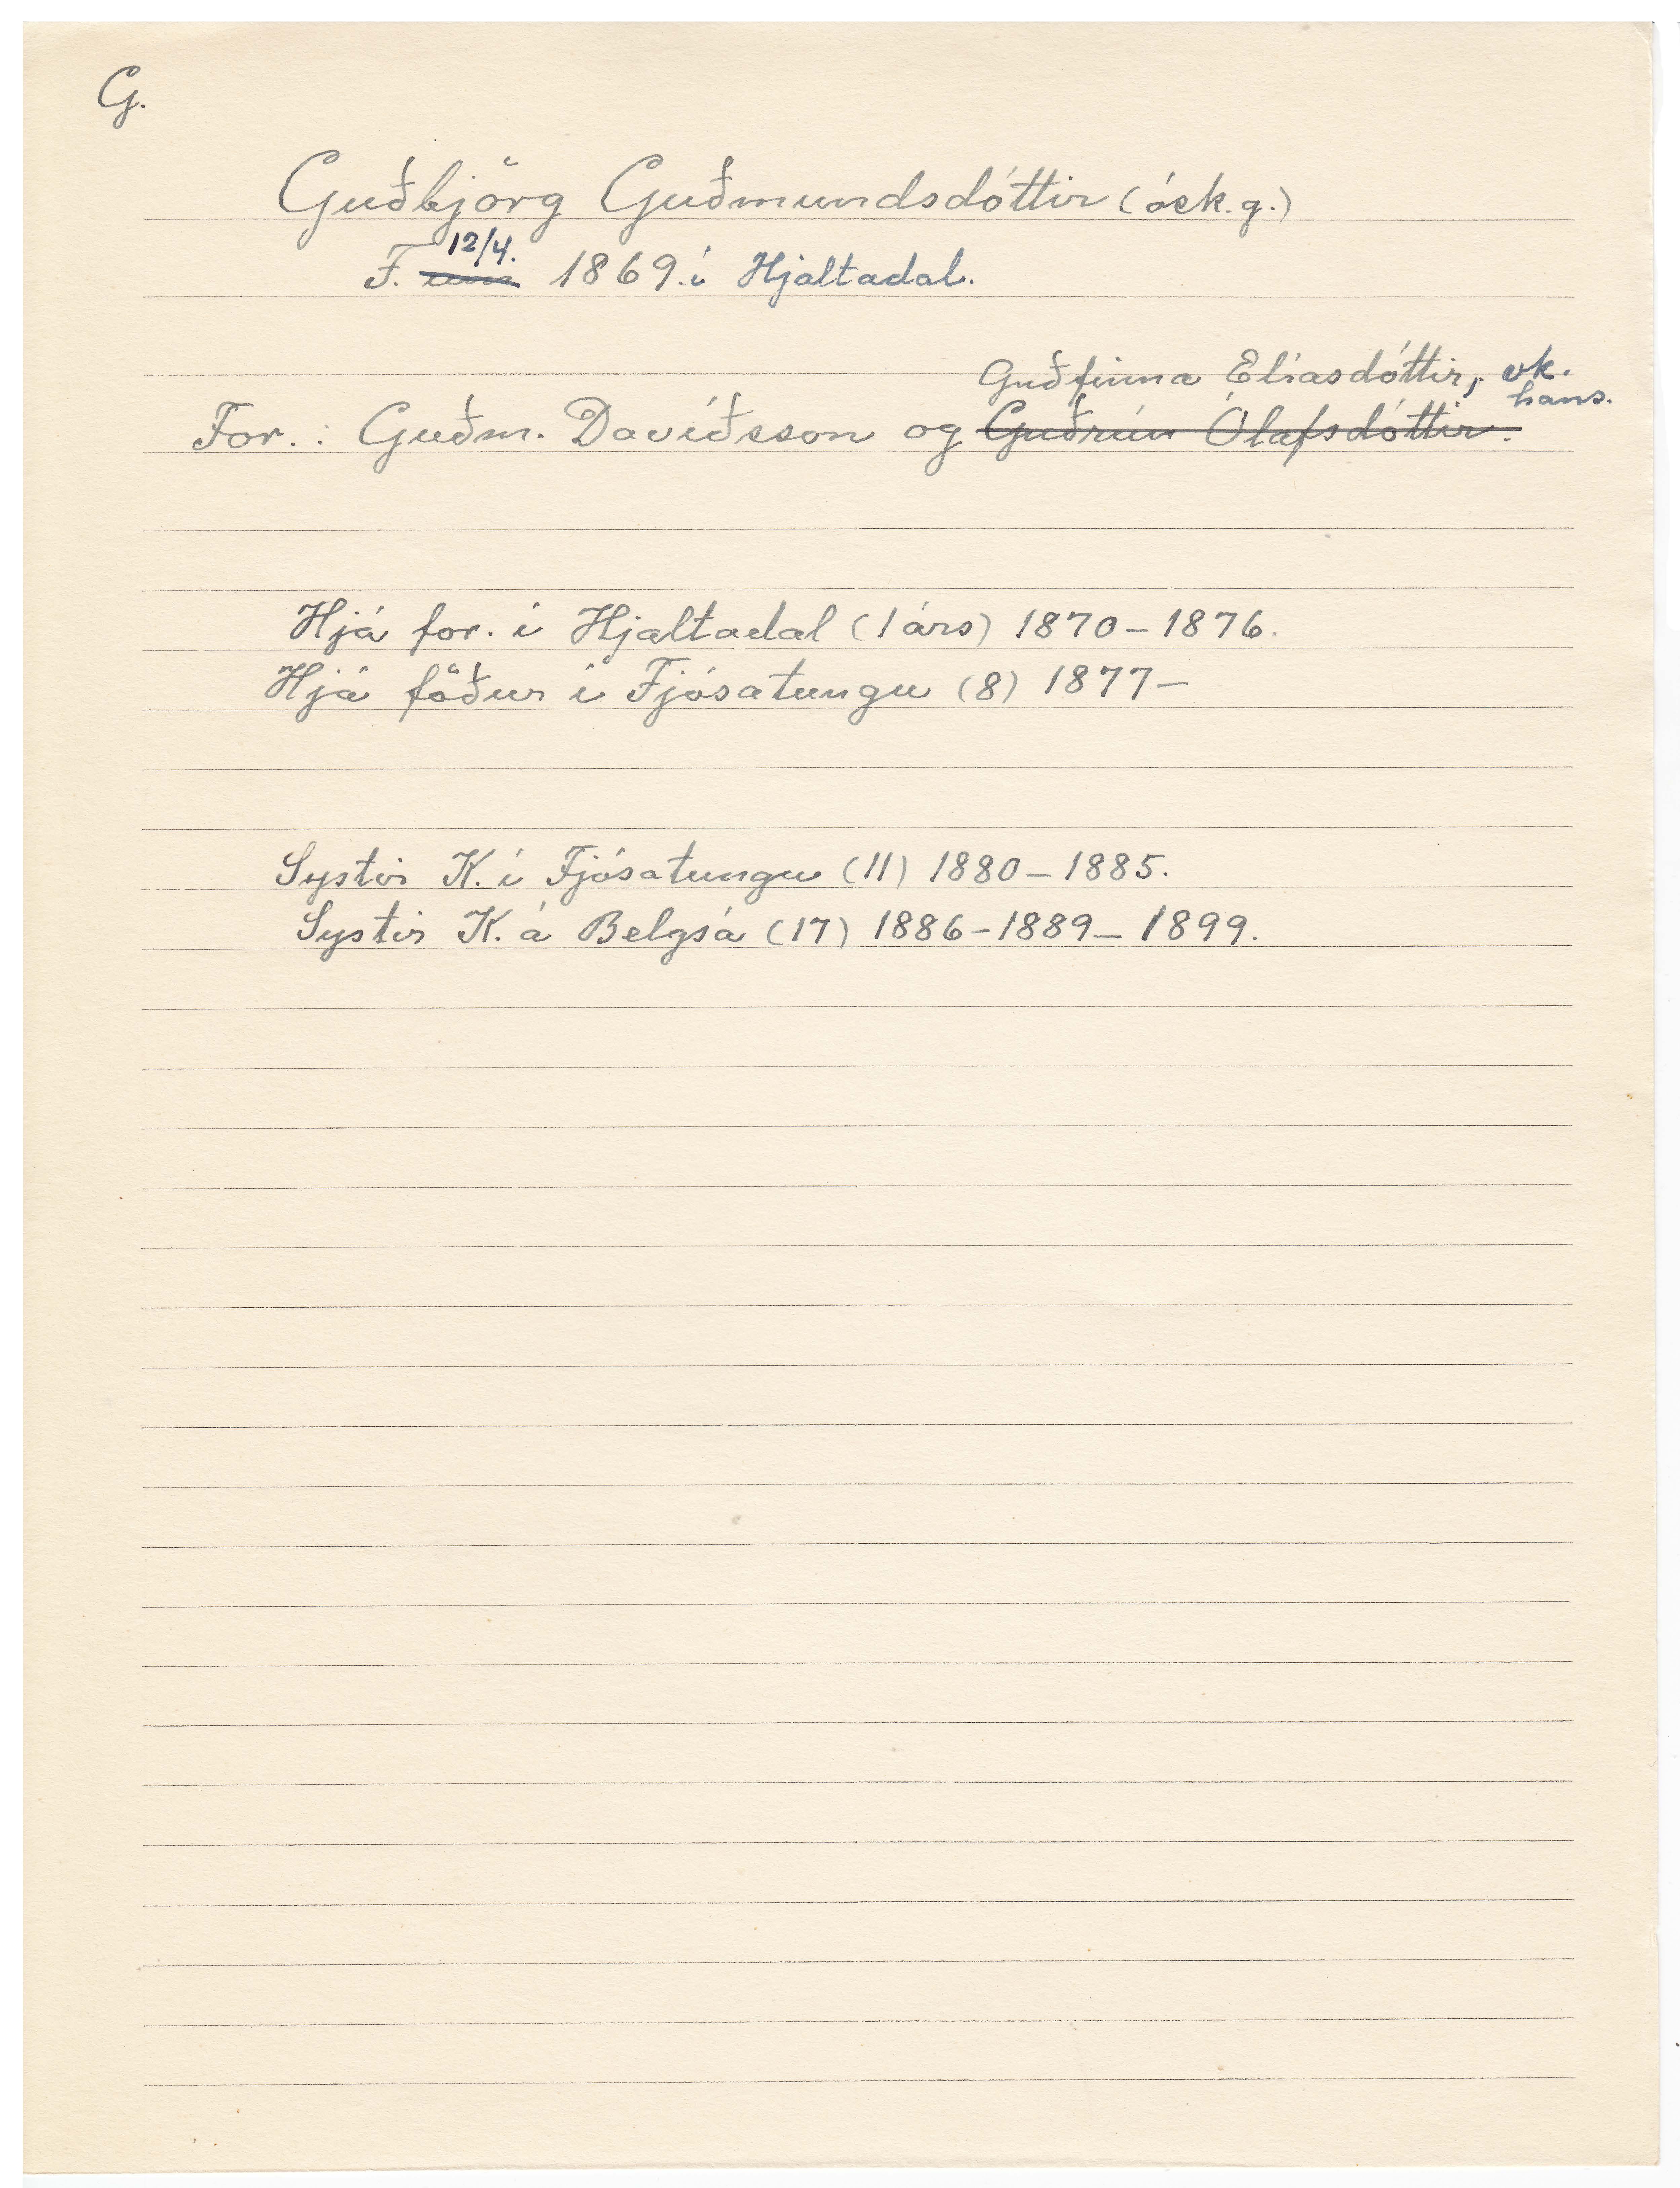 G.
Guðbjörg Guðmundsdóttir (ósk.g.)
12/4.
F. um 1869. í Hjaltadal.
Guðfinna Elíasdóttir, vk.
hans.
For.: Guðm. Davíðsson og Guðrún Ólafsdóttir.
Hjá for. í Hjaltadal (1 árs) 1870-1876.
Hjá föður í Fjósatungu (8) 1877-
Systir K. í Fjósatungu (11) 1880-1885.
Systir K. á Belgsá (17) 1886-1889-1899.